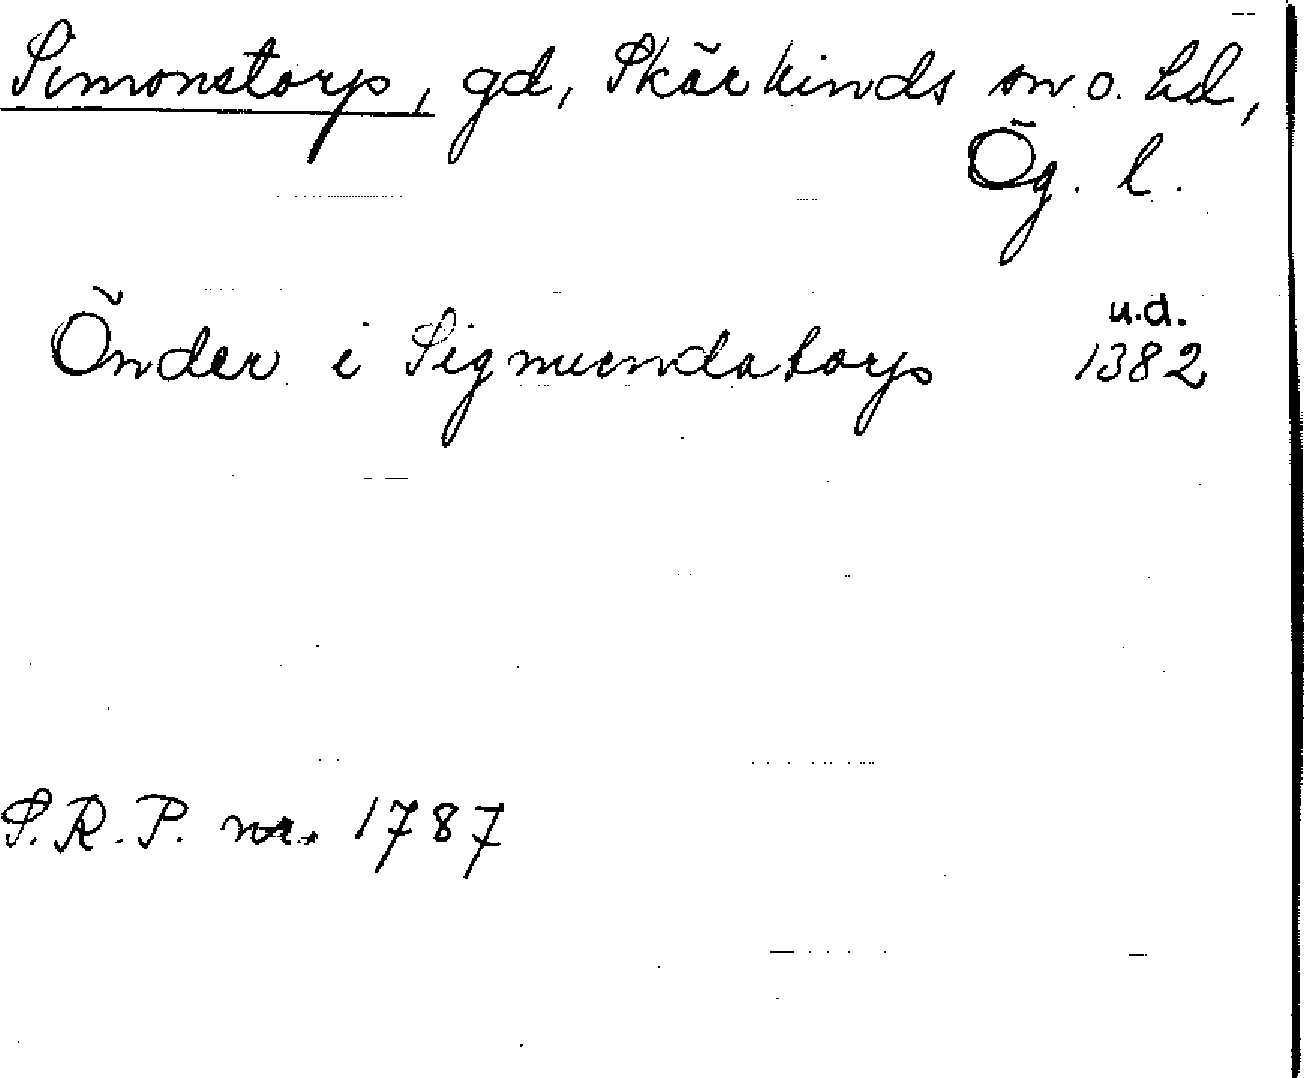 Simonstorp, gd, Skärkinds sn o. hd,
Ög. l.
u.d.
Önder i Sigmundatorp 1382
S.R.P. nr. 1787